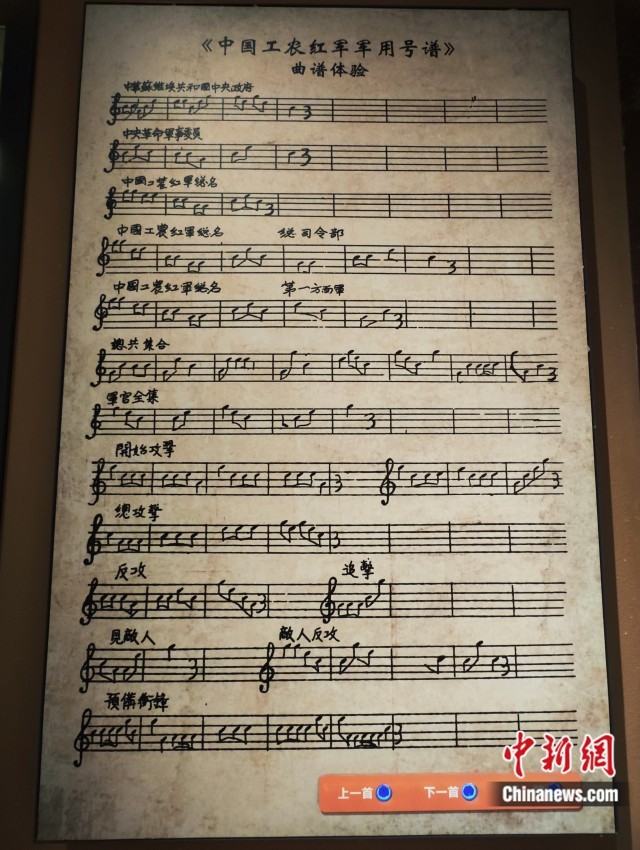 《中国工农红军军用号谱》
曲谱体验
中華蘇維埃共和國中央政府
中央革命軍事委員
中國工農紅軍總名
中國工農紅軍總名 總司令部
中國工農紅軍總名 第一方面軍
總共集合
軍官全集
開始攻擊
總攻擊
反攻 追擊
見敵人 敵人反攻
預備衝鋒
上一首 下一首
中新網
Chinanews.com